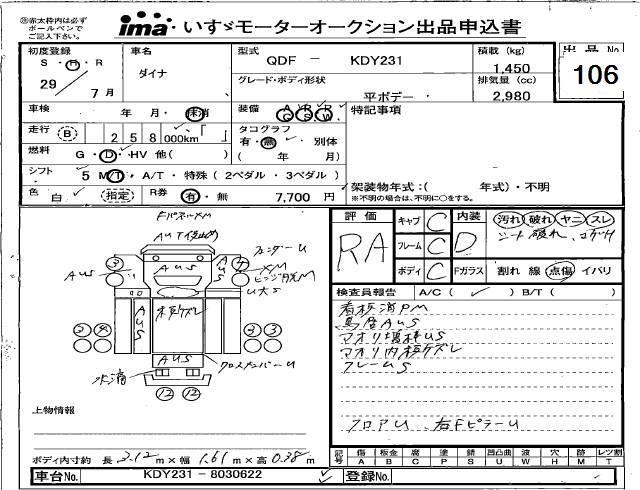 ㊟赤太枠内は必ず
ボールペンで
ご記入下さい。
ima いすゞモーターオークション出品申込書
初度登録 車名 型式 積載 (kg) 出品No
S・H・R ダイナ QDF － KDY231 1,450
29 7月 グレード・ボディ形状 排気量 (cc) 106
平ボデー 2,980
車検 年 月・抹消 装備 特記事項
走行 B 258,000km タコグラフ
有・無 別体
燃料 G・D・HV 他( ) ( 年 月)
シフト 5 MT・A/T・特殊 (2ペダル・3ペダル)
架装物年式:( 年式)・不明
色 白 (指定) R券 有・無 7,700 円
※不明の場合は、不明に○をする。
評価 キャブ C 内装 汚れ 破れ ヤニ スレ
RA フレーム C D シート破れ、コゲ
ボディ C Fガラス 割れ 線 点傷 イバリ
検査員報告 A/C ( ✓ ) B/T ( )
看板消PM
鳥居AUS
アオリ
アオリ内板ケズレ
フレームS
フロアU 右FピラーU
AUS
AUS
AUS
AUS
水滴
クロスメンバーU
⑫⑫
上物情報
ボディ内寸約 長 3.12 m×幅 1.61 m×高 0.38 m
記号 傷 板金 腐 塗 錆 凹凸曲 波 穴 跡 レツ割
A B C P S U W H M T
車台No. KDY231－8030622 登録No.